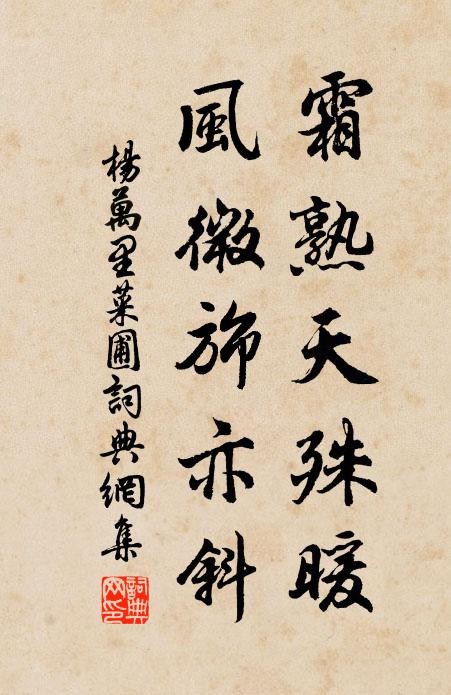 霜熟天殊暖
風微旆亦斜
楊萬里菜圃詞典網集
詞典網印